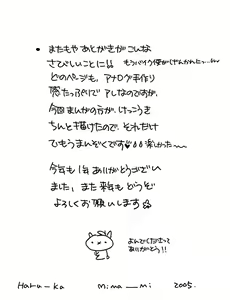 • またもや あとがきが こんな
さびしいことに!! もうバイク便がげんかんに…
どのページも、アナログ手作り
感たっぷりで アレなのですが、
今回まんがの方が、けっこうき
ちんと描けたので、それだけ
でもうまんぞくです 楽しかった〜
今年も1年ありがとうござい
ました、また来年も どうぞ
よろしくお願いします
よんでくださって
ありがとう!!
Haru-ka Mina__mi 2005.